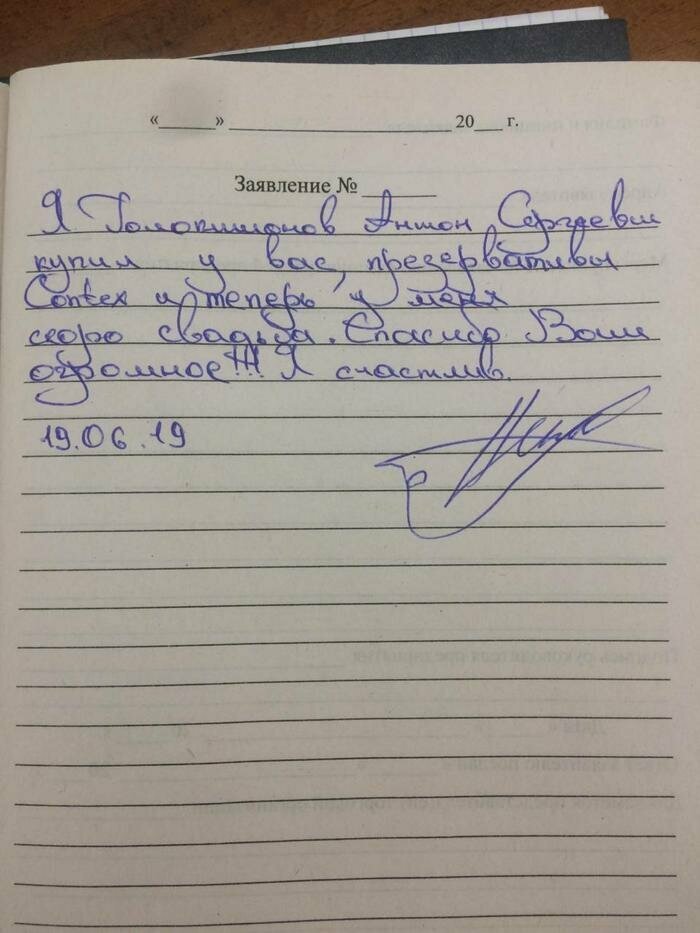 «____» ____________ 20__ г.
Заявление № ______
Я Антон Сергеевич
купил у вас, презервативы
Contex и теперь у меня
скоро свадьба. Спасибо Вам
огромное!!! Я счастлив.
19.06.19